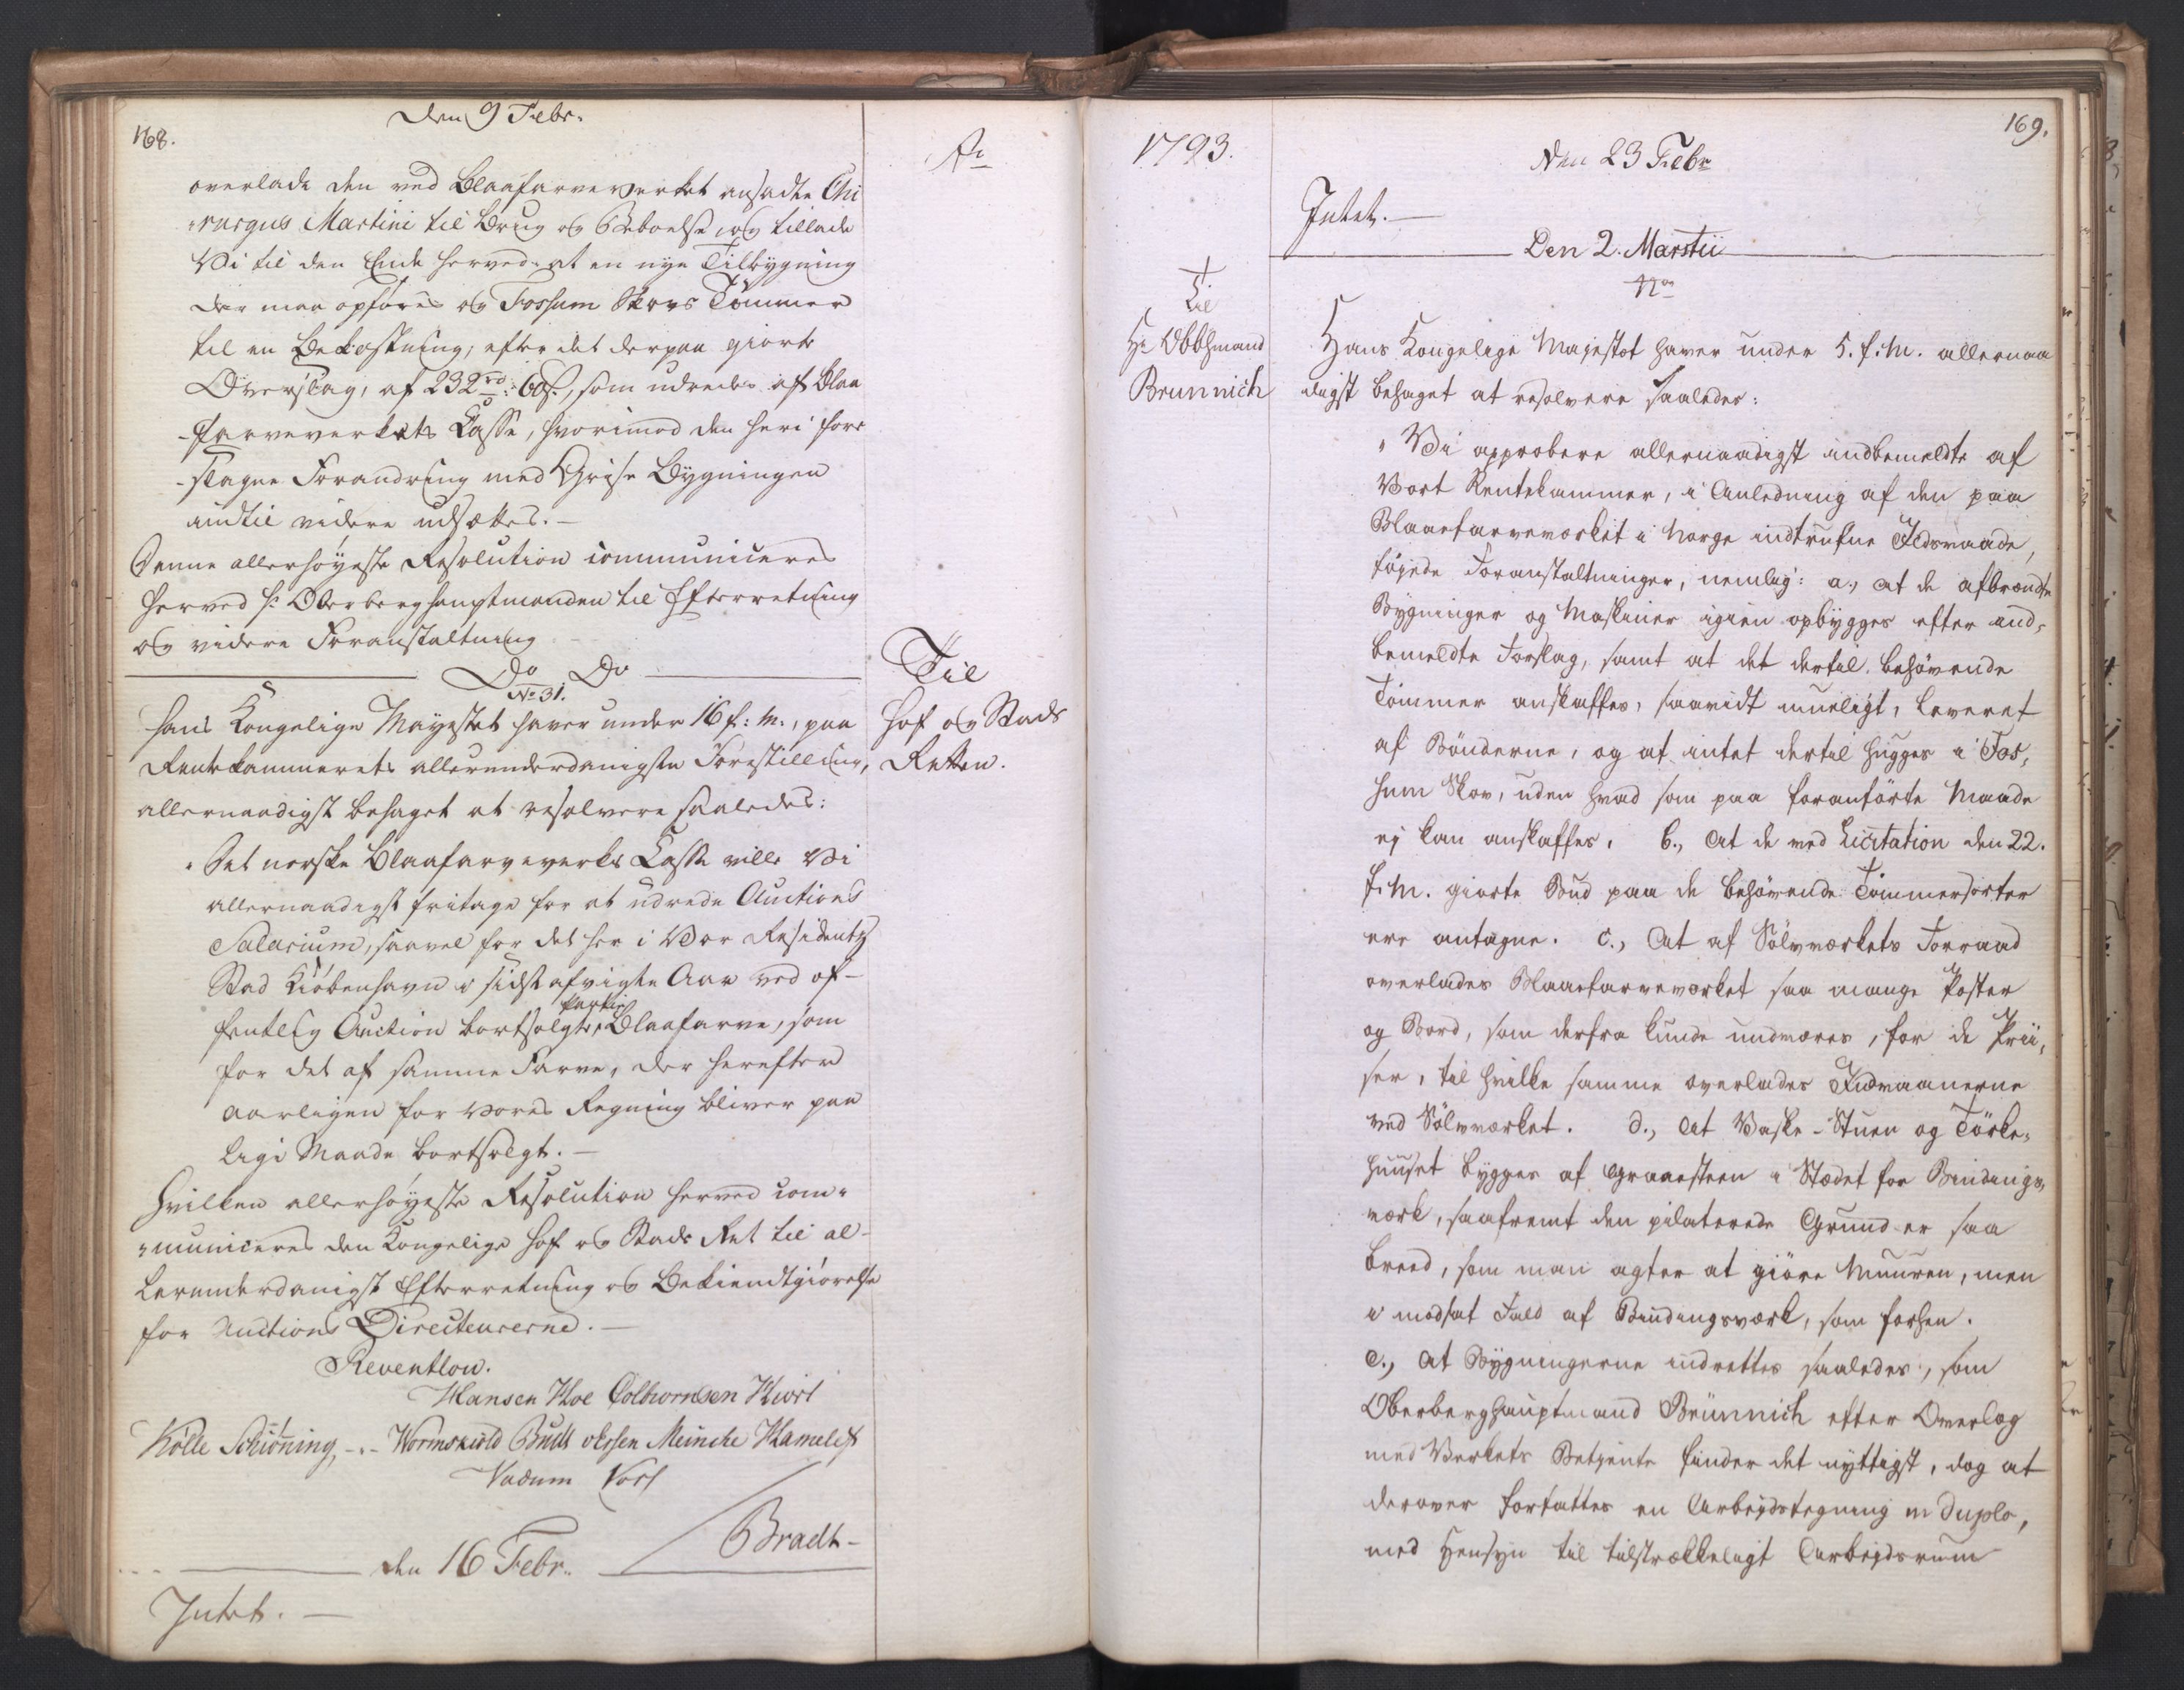 168.
Den 9 Febr.
Ao
overlade den ved Blaafarveverket ansadte Chi
rurgus Martini til Brug og Beboelse, og tillade
Vi til den Ende herved at en nye Tilbygning
der maa opføres og Fossum Skovs Tømmer
til en Bekostning, efter det derpaa giorte
Overslag, af 232 rd: 60 s., som udredes af Blaa
-farveverkets Casse, hvorimod den heri fore
-slagne Forandring med Grise Bygningen
indtil videre udsættes. —
Denne allerhøyeste Resolution communiceres
herved Hr Oberberghauptmanden til Efterretning
og videre Foranstaltning
Do Do
No 31.
Til
Hof og Stads
Retten.
Hans Kongelige Mayestet haver under 16 f: M:, paa
Rentekammerets allerunderdanigste Forestilling,
allernaadigst behaget at resolvere saaledes:
"Det norske Blaafarveverks Casse ville Vi
allernaadigst fritage for at udrede Auctions
Salarium, saavel for det her i Vor Residentz
Stad Kiøbenhavn i sidst afvigte Aar ved of-
fentlig Auction bortsolgte Partie Blaafarve, som
for det af samme Farve, der herefter
aarligen for Vores Regning bliver paa
lige Maade bortsolgt. —
Hvilken allerhøyeste Resolution herved com-
-municeres den Kongelige Hof og Stads Ret til al-
lerunderdanigst Efterretning og Bekiendtgiørelse
for Auctions Directeurerne. —
Reventlow.
Hansen Hoe Colbiornsen Kiort
Kölle Schiøning, -.- Wormskiold Bull v Essen Meincke
Vadum
Bradt
den 16 Febr.
Intet. —
1793.
169.
Den 23 Febr
Intet. —
Den 2. Martii
No
Til
Hr Obbhmand
Brunnich
Hans Kongelige Majestæt haver under 5. f. M. allernaa
digst behaget at resolvere saaledes:
"Vi approbere allernaadigst indbemeldte af
Vort Rentekammer, i Anledning af den paa
Blaafarveværket i Norge indtrufne Ildsvaade,
føyede Foranstaltninger, nemlig: a., at de afbrændte
Bygninger og Maskiner igien opbygges efter ind-
bemeldte Forslag, samt at det dertil behøvende
Tømmer anskaffes, saavidt mueligt, leveret
af Bønderne, og at intet dertil hugges i Fos-
sum Skov, uden hvad som paa foranførte Maade
ej kan anskaffes. b., At de ved Licitation den 22.
f. M. giorte Bud paa de behøvende Tømmersorter
ere antagne. c., At af Sølvværkets Forraad
overlades Blaafarveværket saa mange Poster
og Bord, som derfra kunde undværes, for de Prii-
ser, til hvilke samme overlades Indvaanerne
ved Sølvværket. d., At Vaske-Stuen og Tørke-
huuset bygges af Graasteen i Stædet for Bindings-
værk, saafremt den pilaterede Grund er saa
breed, som man agter at giøre Muuren, men
i modsat Fald af Bindingsværk, som forhen.
e., At Bygningerne indrettes saaledes, som
Oberberghauptmand Brünnich efter Overlæg
med Verkets Betjente finder det nyttigst, dog at
derover forfattes en Arbejdstegning in duplo,
med Hensyn til tilstrækkeligt Arbejdsrum